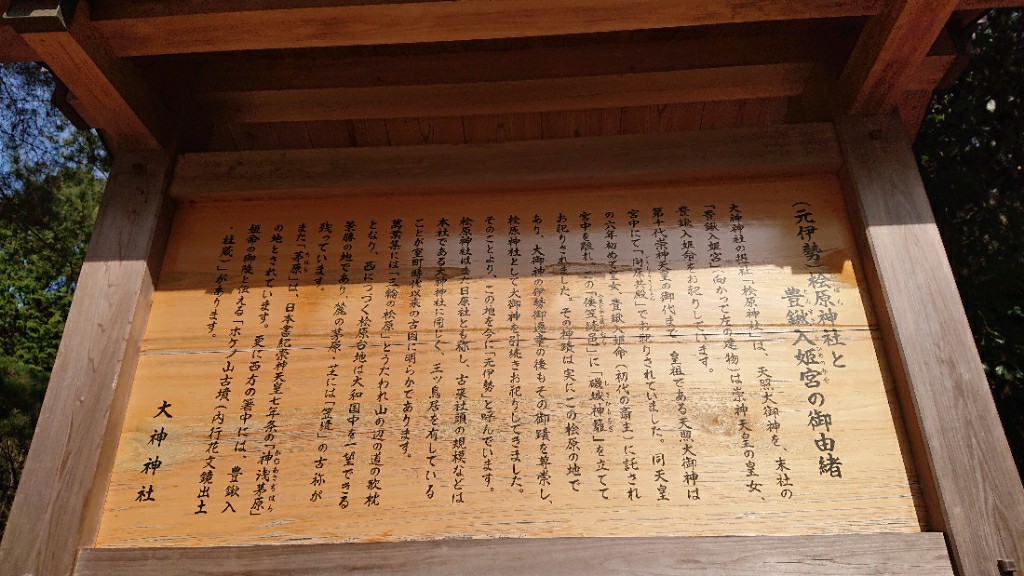 (元伊勢)桧原神社と
豊鍬入姫宮の御由緒
大神神社の摂社「桧原神社」は、天照大御神を、末社の
「豊鍬入姫宮」(向かって左の建物)は崇神天皇の皇女、
豊鍬入姫命をお祀りしています。
第十代崇神天皇の御代まで、皇祖である天照大御神は
宮中にて、「同床共殿」でお祀りされていました。同天皇
の六年初めて皇女、豊鍬入姫命(初代の斎主)に託され
宮中を離れ、この「倭笠縫邑」に「磯城神籬」を立てて
お祀りされました。その神蹟は実にこの桧原の地で
あり、大御神の伊勢御遷幸の後もその御蹟を尊崇し、
桧原神社として大御神を引続きお祀りしてきました。
そのことより、この地を今に「元伊勢」と呼んでいます。
桧原神社はまた日原社とも称し、古来社頭の規模などは
本社である大神神社に同じく、三ツ鳥居を有している
ことが室町時代以来の古図に明らかであります。
萬葉集には「三輪の桧原」とうたわれ山の辺の道の歌枕
となり、西につづく桧原台地は大和国中を一望できる
景勝の地であり、麓の茅原・芝には「笠縫」の古称が
残っています。
また「茅原」は、日本書紀崇神天皇七年条の「神浅茅原」
の地とされています。更に西方の箸中には、豊鍬入
姫命の御陵と伝える「ホケノ山古墳(内行花文鏡出土
・社蔵)」があります。
大神神社